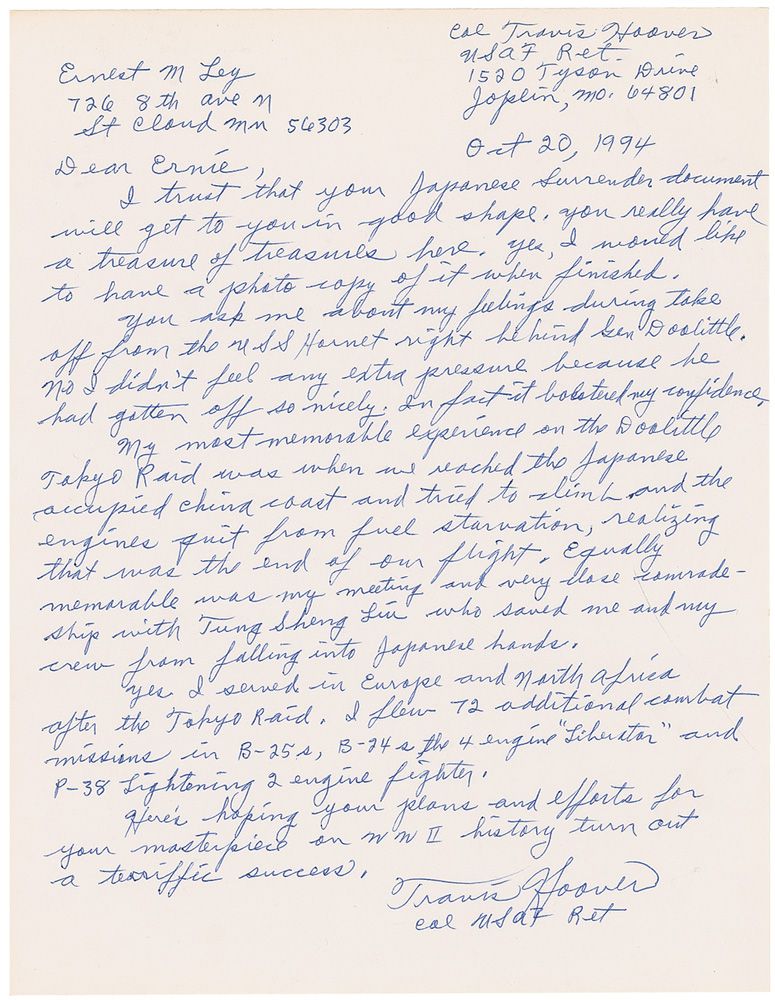 Col Travis Hoover
USAF Ret.
1520 Tyson Drive
Joplin, Mo. 64801
Ernest M Ley
726 8th ave N
St Cloud Mn 56303
Oct 20, 1994
Dear Ernie,
I trust that your Japanese Surrender document
will get to you in good shape. you really have
a treasure of treasures here. yes, I would like
to have a photo copy of it when finished.
You ask me about my feelings during take
off from the USS Hornet right behind Gen Doolittle.
No I didn't feel any extra pressure because he
had gotten off so nicely. In fact it bolstered my confidence.
My most memorable experience on the Doolittle
Tokyo Raid was when we reached the Japanese
occupied China coast and tried to climb and the
engines quit from fuel starvation, realizing
that was the end of our flight. Equally
memorable was my meeting and very close comrade-
ship with Tung Sheng Liu who saved me and my
crew from falling into Japanese hands.
Yes I served in Europe and North Africa
after the Tokyo Raid. I flew 72 additional combat
missions in B-25s, B-24s the 4 engine "Liberator" and
P-38 Lightening 2 engine fighter.
Here's hoping your plans and efforts for
your masterpiece on WW II history turn out
a terriffic success.
Travis Hoover
Col USAF Ret